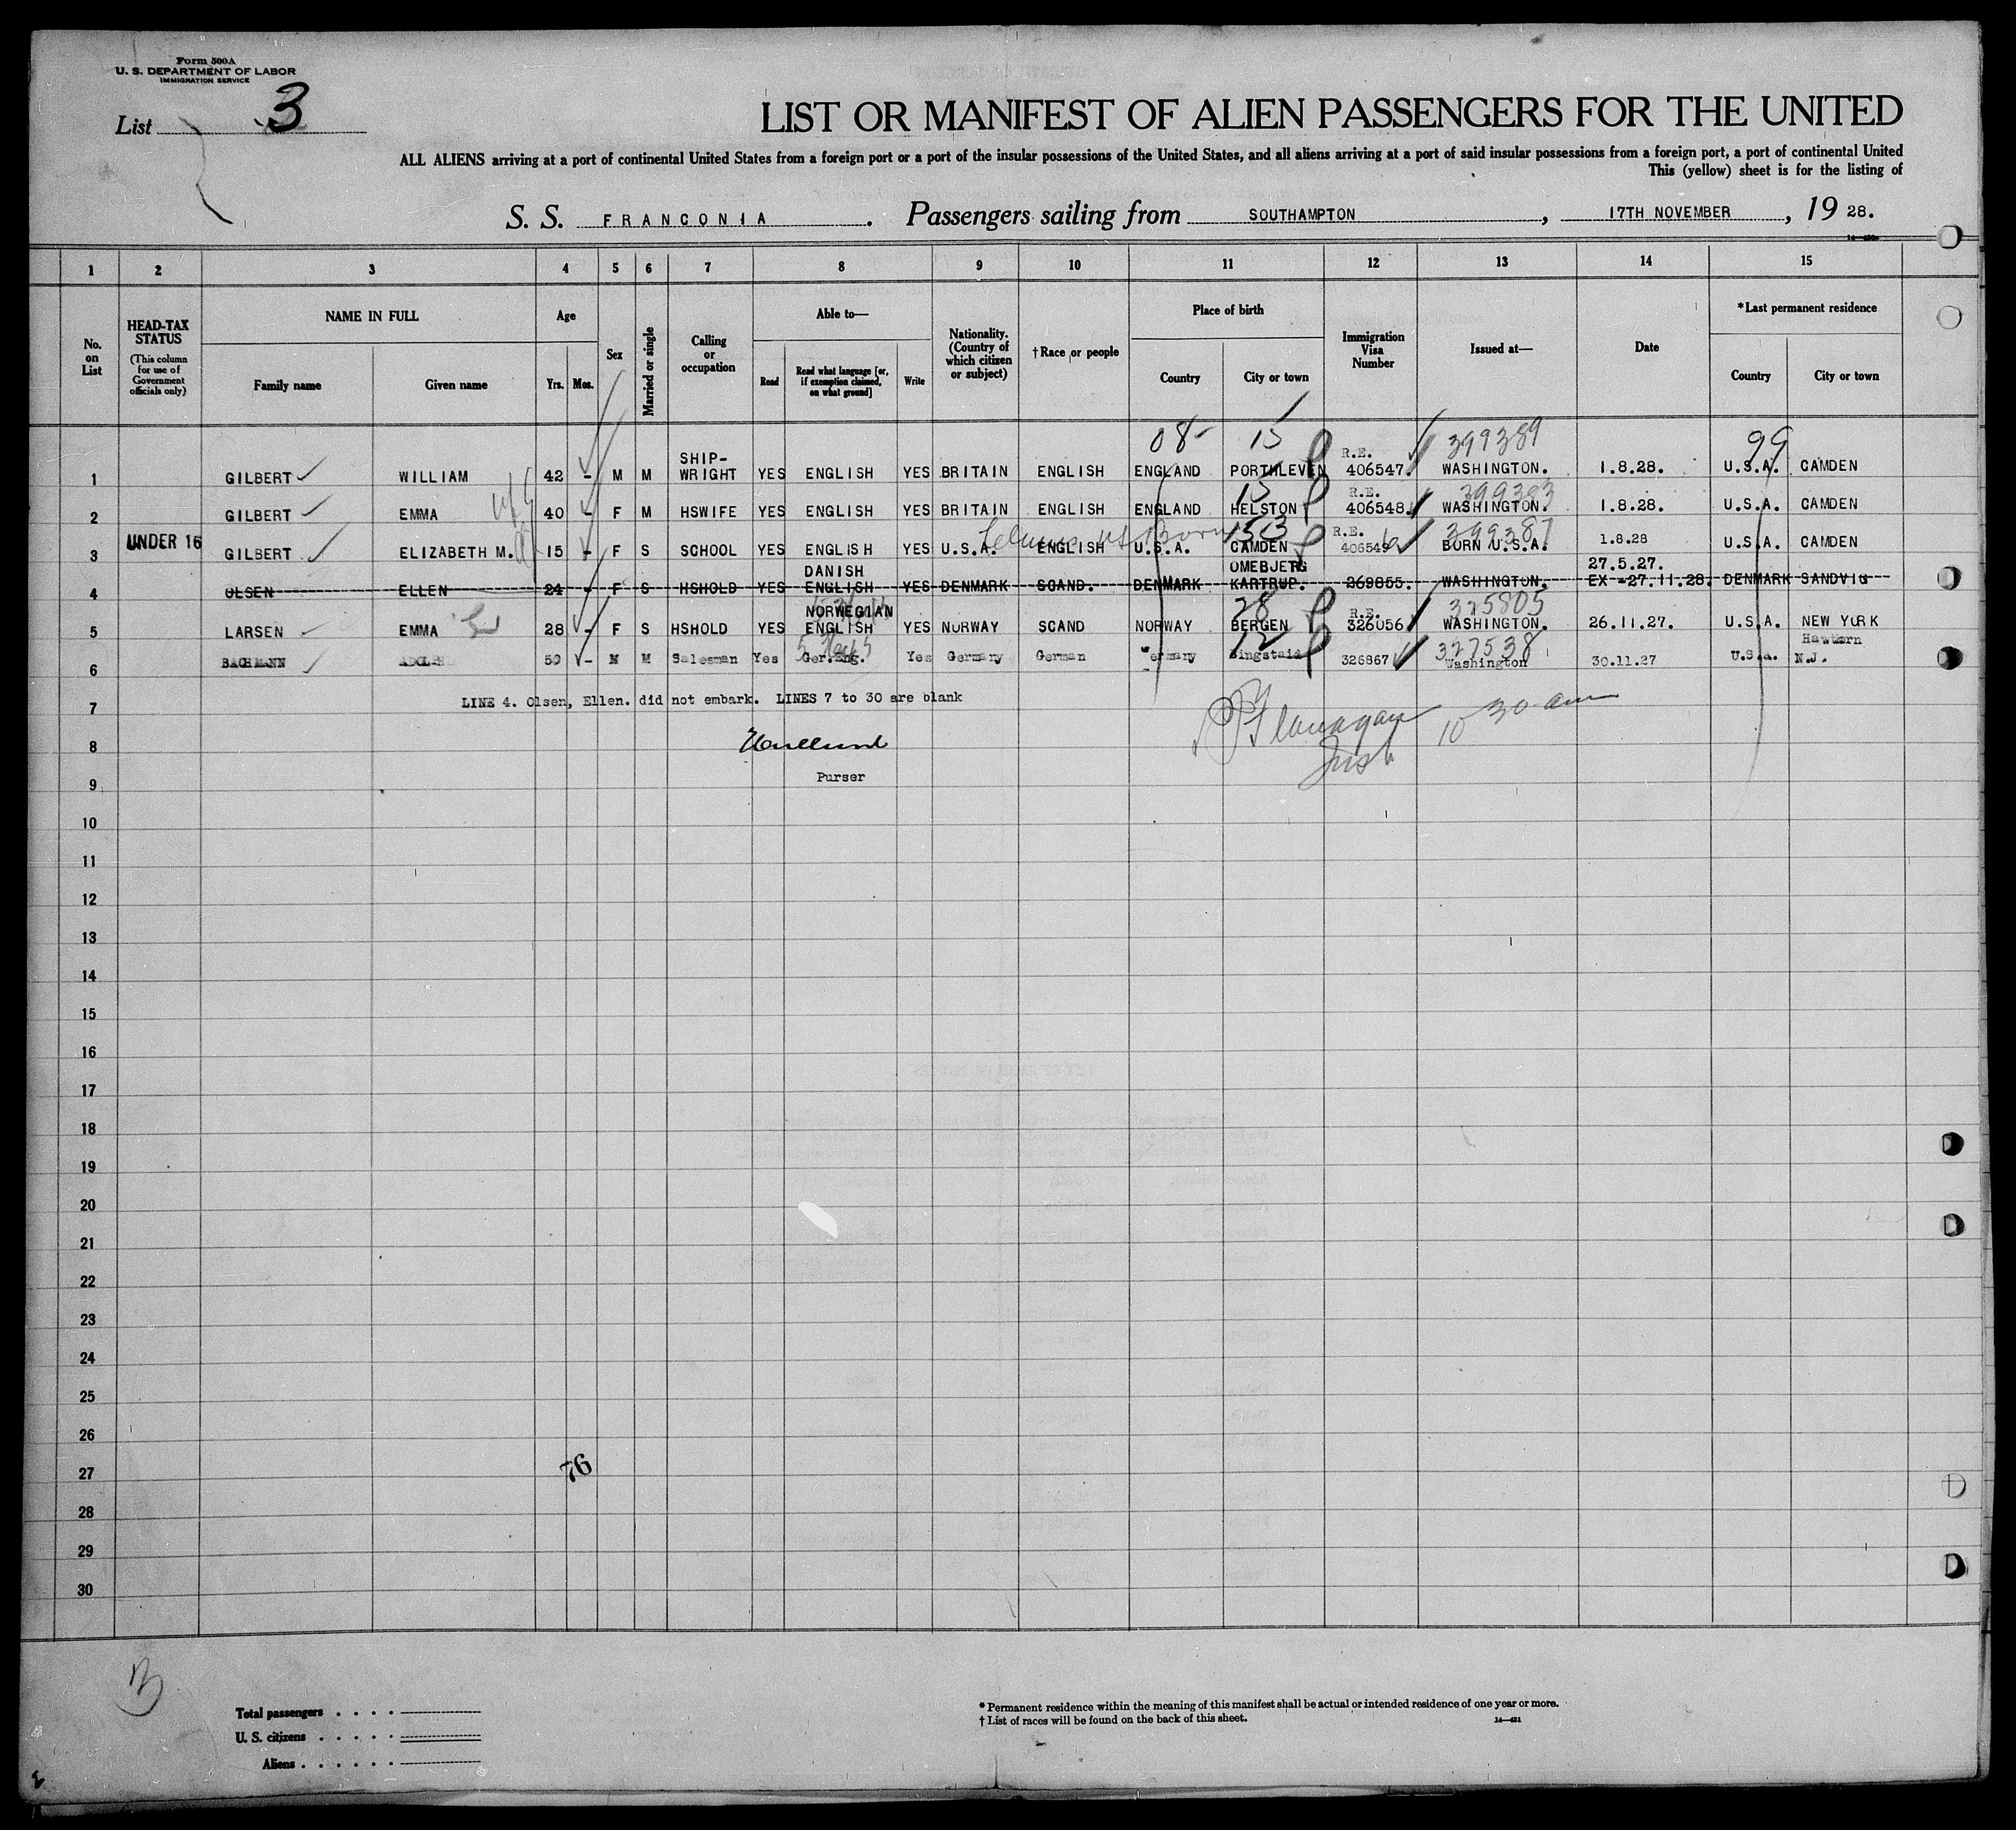 Form 500A
U. S. DEPARTMENT OF LABOR
IMMIGRATION SERVICE
List 3
LIST OR MANIFEST OF ALIEN PASSENGERS FOR THE UNITED
ALL ALIENS arriving at a port of continental United States from a foreign port or a port of the insular possessions of the United States, and all aliens arriving at a port of said insular possessions from a foreign port, a port of continental United
This (yellow) sheet is for the listing of
S. S. FRANCONIA. Passengers sailing from SOUTHAMPTON, 17TH NOVEMBER, 19 28.
1 2 3 4 5 6 7 8 9 10 11 12 13 14 15
No. on List
HEAD-TAX STATUS
(This column for use of Government officials only)
NAME IN FULL
Family name Given name
Age
Yrs. Mos.
Sex
Married or single
Calling or occupation
Able to—
Read Read what language [or, if exemption claimed, on what ground] Write
Nationality. (Country of which citizen or subject)
†Race or people
Place of birth
Country City or town
Immigration Visa Number
Issued at—
Date
*Last permanent residence
Country City or town
08- 15 399389 99
1 GILBERT WILLIAM 42 - M M SHIP-WRIGHT YES ENGLISH YES BRITAIN ENGLISH ENGLAND PORTHLEVEN R.E. 406547. WASHINGTON. 1.8.28. U.S.A. CAMDEN
15 399383
2 GILBERT EMMA 40 - F M HSWIFE YES ENGLISH YES BRITAIN ENGLISH ENGLAND HELSTON R.E. 406548. WASHINGTON. 1.8.28. U.S.A. CAMDEN
Claims US Born 153 399387
3 UNDER 16 GILBERT ELIZABETH M. 15 - F S SCHOOL YES ENGLISH YES U.S.A. ENGLISH U.S.A. CAMDEN R.E. 406549 BORN U.S.A. 1.8.28 U.S.A. CAMDEN
DANISH OMEBJERG 27.5.27.
4 OLSEN ELLEN 24 - F S HSHOLD YES ENGLISH YES DENMARK SCAND. DENMARK KARTRUP. 269855. WASHINGTON. EX -27.11.28. DENMARK SANDVIG
NORWEGIAN 28 325805
5 LARSEN EMMA 28 - F S HSHOLD YES ENGLISH YES NORWAY SCAND NORWAY BERGEN R.E. 326056 WASHINGTON. 26.11.27. U.S.A. NEW YORK
12 327538
6 BACHMANN ADOLPH 59 - M M Salesman Yes Ger.Eng. Yes Germany German Germany Singstaid 326867 Washington 30.11.27 U.S.a. Hawthorn N.J.
7 LINE 4. Olsen, Ellen. did not embark. LINES 7 to 30 are blank
Flanagan
Insp
10 30 am
8
Purser
9
10
11
12
13
14
15
16
17
18
19
20
21
22
23
24
25
26
27
76
28
29
30
3
Total passengers
U. S. citizens
Aliens
* Permanent residence within the meaning of this manifest shall be actual or intended residence of one year or more.
† List of races will be found on the back of this sheet.
14—431